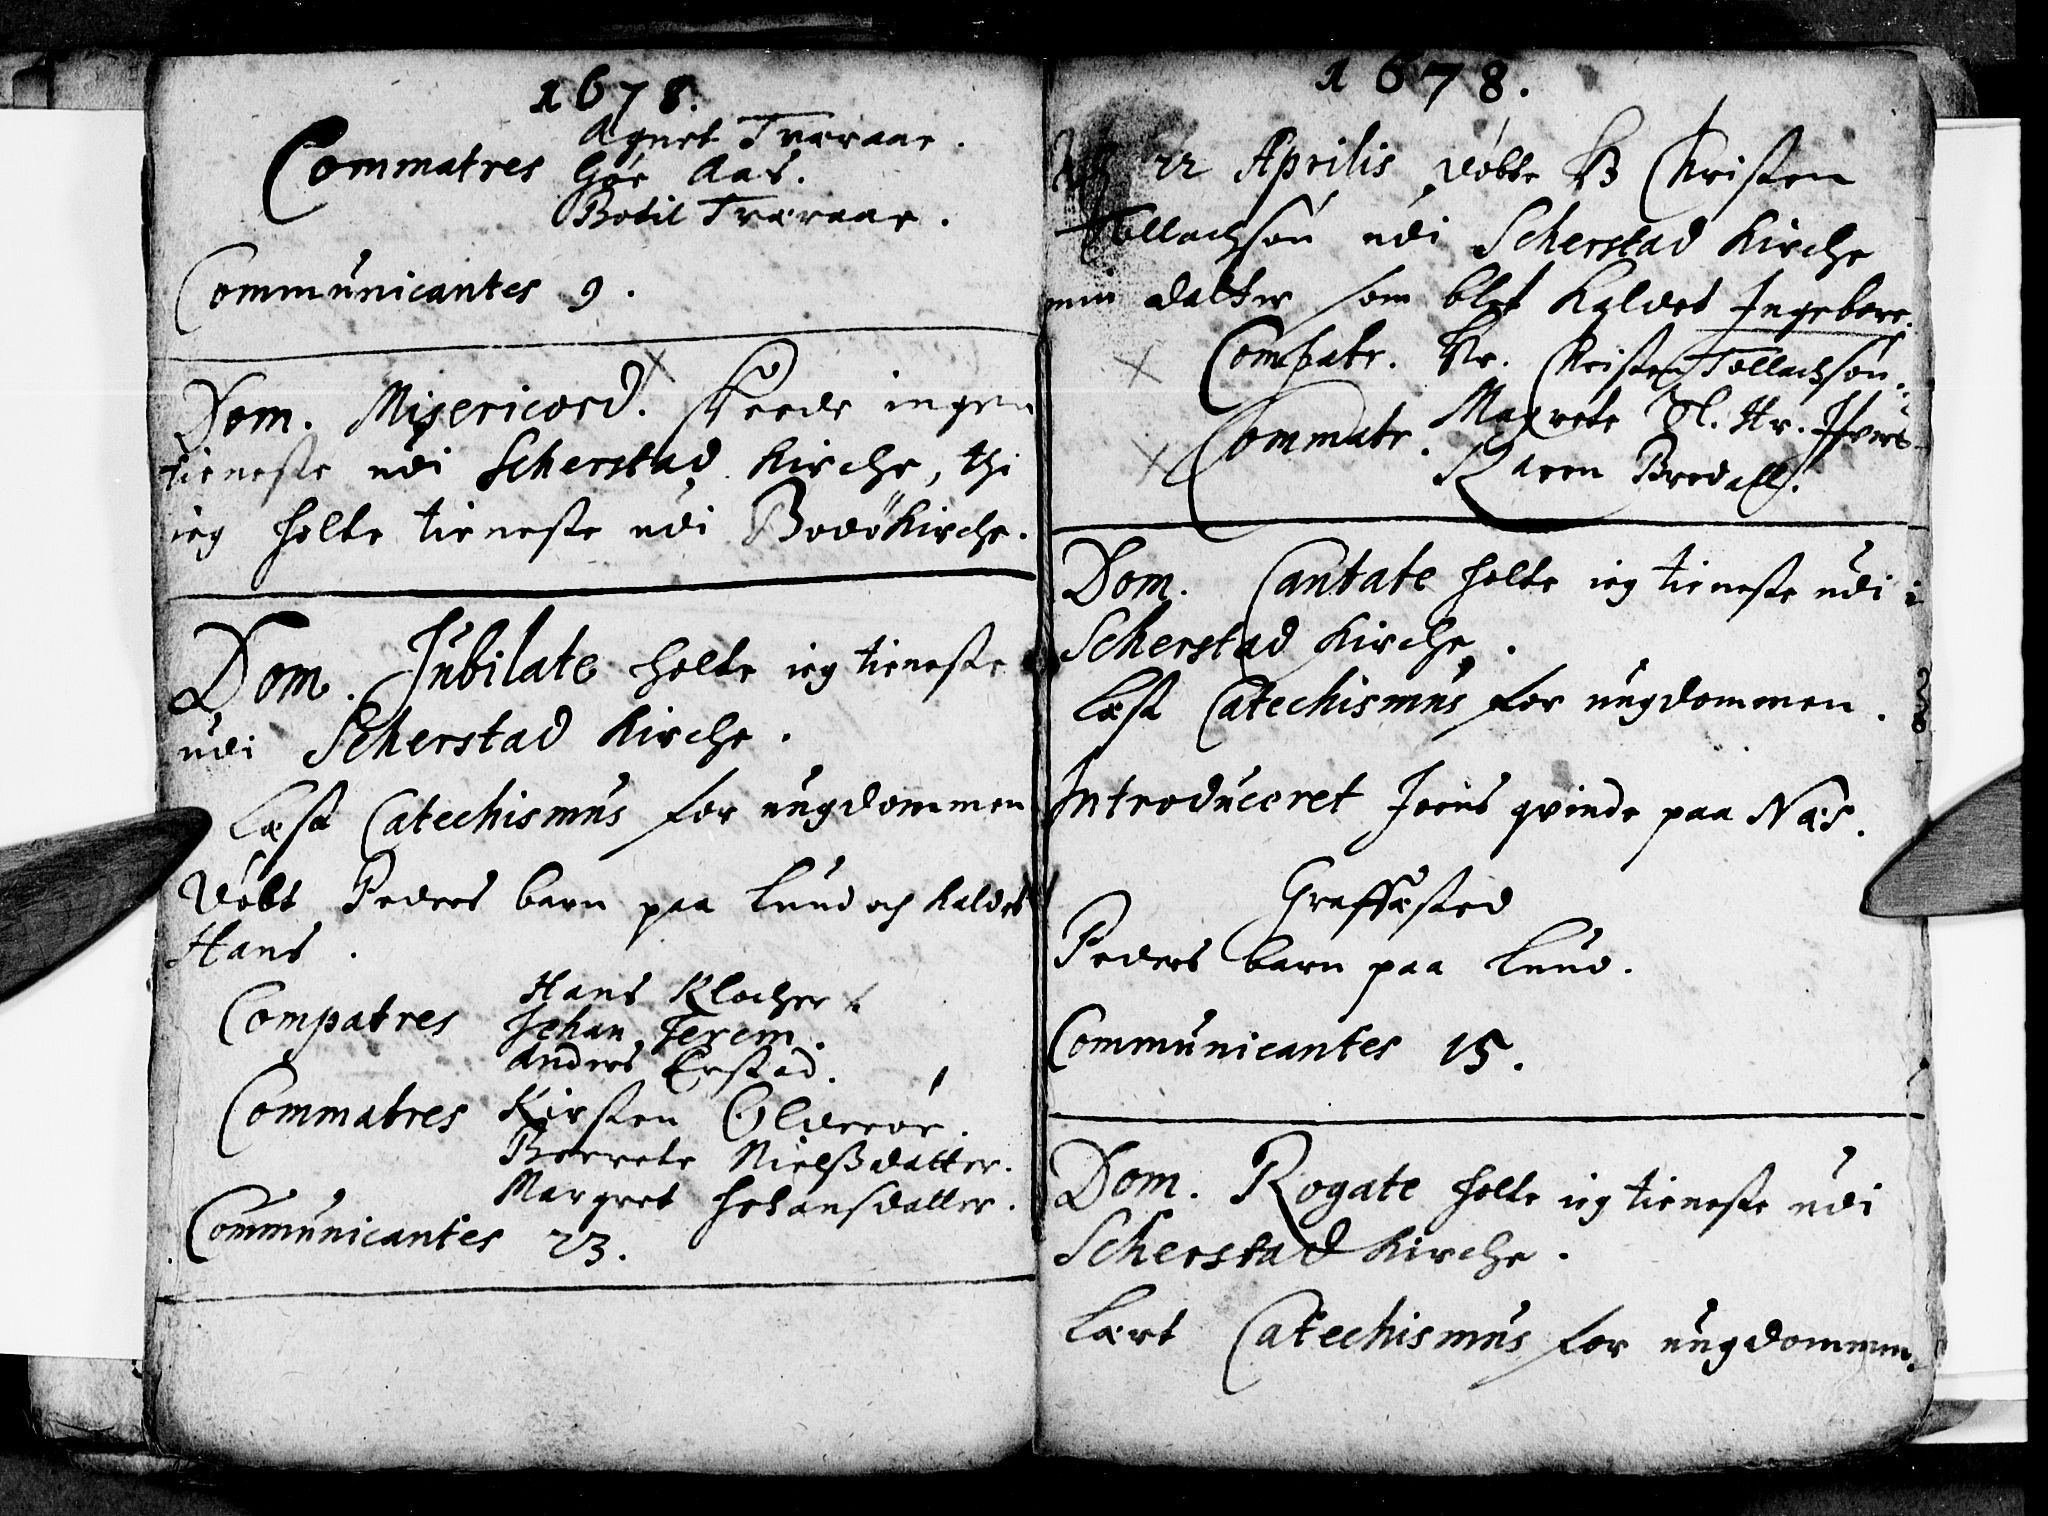 1678.
Commatres Agnet Træraae.
Gøe Aas.
Botil Træraae.
Communicantes 9.
Dom. Misericord. skeede ingen
tieneste udi Scherstad Kirche, thi
ieg holte tieneste udi Bodø Kirche.
Dom. Jubilate holte ieg tieneste
udi Scherstad Kirche.
Læst Catechismus for ungdommen
Døbt Peders barn paa Lund och kaldet
Hans.
Compatres Hans Klocher
Johan Jerem.
Anders Erstad.
Commatres Kirsten Olderøe.
Berrete Nielßdatter.
Margret Johansdatter.
Communicantes 23.
1678.
22 Aprilis døbte Hr Christen
Tollachsøn udi Scherstad Kirche
min datter som blef kaldet Ingeborr.
Compatr. Hr. Christen Tollachsøn.
Commatr. Magrete Sl. Hr. Ifvers
Karen Bredall.
Dom. Cantate holte ieg tieneste udi
Scherstad Kirche.
Læst Catechismus for ungdommen.
Introduceret Jens qvinde paa Næs.
Graffæsted
Peders barn paa Lund.
Communicantes 15.
Dom. Rogate holte ieg tieneste udi
Scherstad Kirche.
Lært Catechismus for ungdommen.